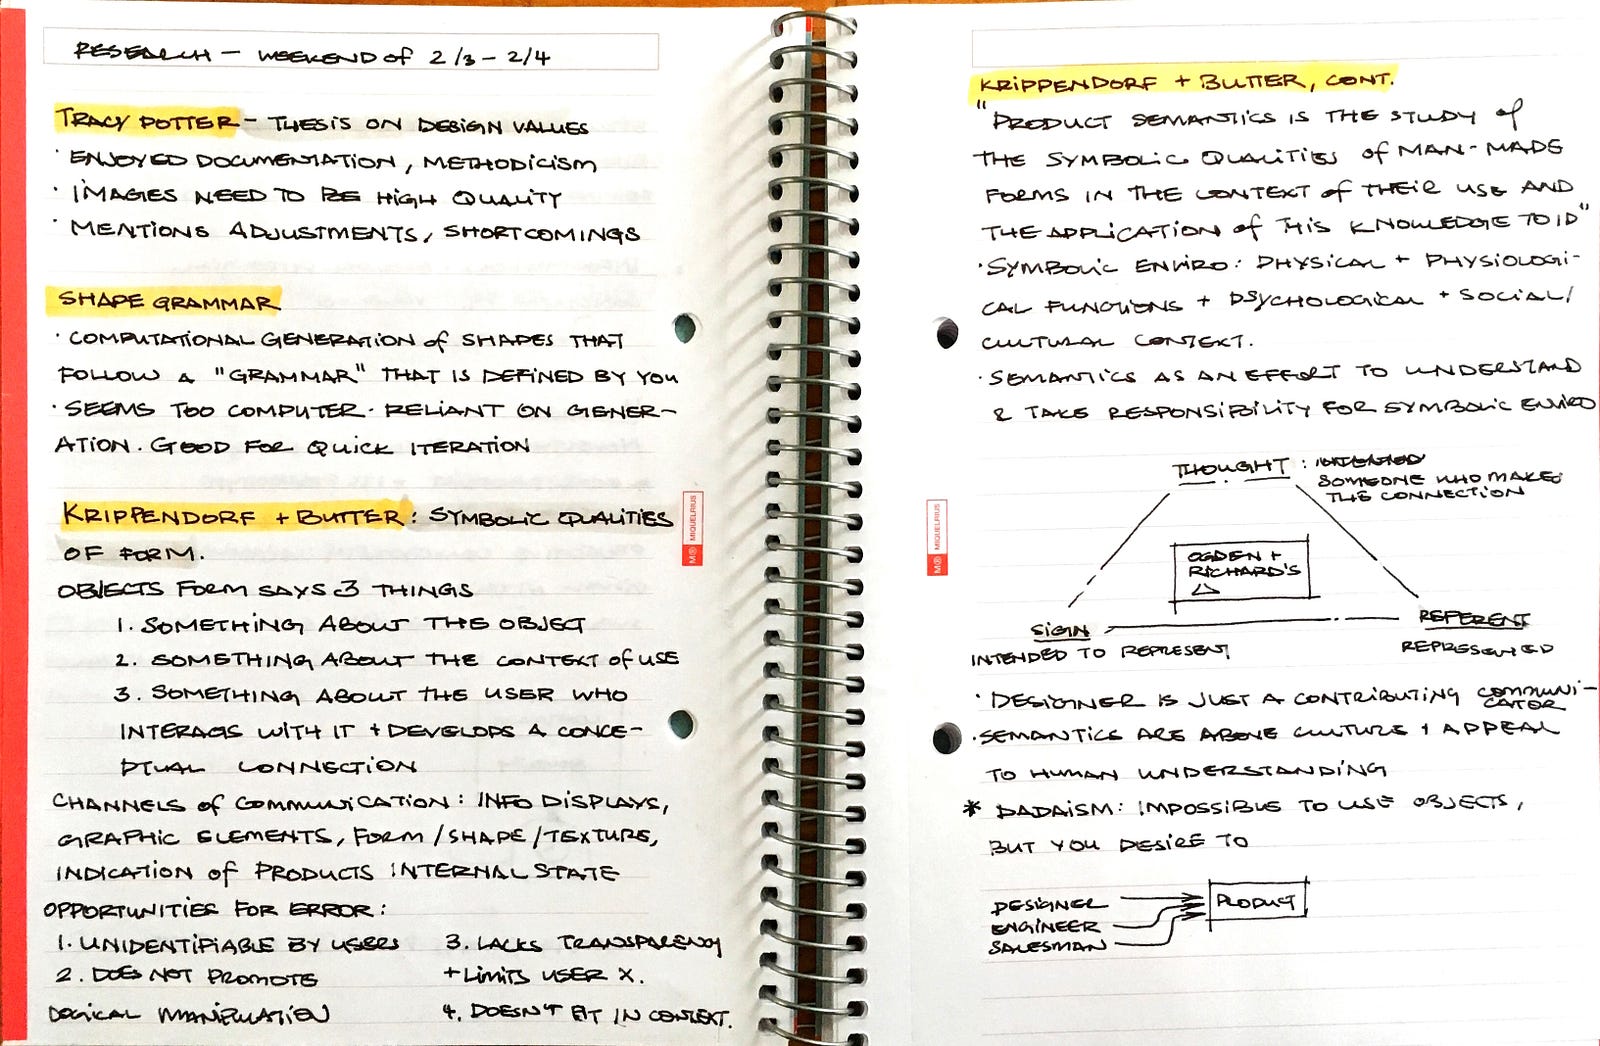 RESEARCH – WEEKEND of 2/3 – 2/4
TRACY POTTER – THESIS ON DESIGN VALUES
· ENJOYED DOCUMENTATION, METHODICISM
· IMAGES NEED TO BE HIGH QUALITY
· MENTIONS ADJUSTMENTS, SHORTCOMINGS
SHAPE GRAMMAR
· COMPUTATIONAL GENERATION of SHAPES THAT
FOLLOW A "GRAMMAR" THAT IS DEFINED BY YOU
· SEEMS TOO COMPUTER-RELIANT ON GENER-
ATION. GOOD FOR QUICK ITERATION
KRIPPENDORF + BUTTER: SYMBOLIC QUALITIES
OF FORM.
OBJECTS FORM SAYS 3 THINGS
1. SOMETHING ABOUT THE OBJECT
2. SOMETHING ABOUT THE CONTEXT of USE
3. SOMETHING ABOUT THE USER WHO
INTERACTS WITH IT + DEVELOPS A CONCE-
PTUAL CONNECTION
CHANNELS of COMMUNICATION: INFO DISPLAYS,
GRAPHIC ELEMENTS, FORM/SHAPE/TEXTURE,
INDICATION of PRODUCTS INTERNAL STATE
OPPORTUNITIES FOR ERROR:
1. UNIDENTIFIABLE BY USERS
2. DOES NOT PROMOTE
LOGICAL MANIPULATION
3. LACKS TRANSPARENCY
+ LIMITS USER X.
4. DOESN'T FIT IN CONTEXT.
M® MIQUELRIUS
KRIPPENDORF + BUTTER, CONT.
"PRODUCT SEMANTICS IS THE STUDY of
THE SYMBOLIC QUALITIES of MAN-MADE
FORMS IN THE CONTEXT of THEIR USE AND
THE APPLICATION of THIS KNOWLEDGE TO ID"
· SYMBOLIC ENVIRO: PHYSICAL + PHYSIOLOGI-
CAL FUNCTIONS + PSYCHOLOGICAL + SOCIAL/
CULTURAL CONTEXT.
· SEMANTICS AS AN EFFORT TO UNDERSTAND
& TAKE RESPONSIBILITY FOR SYMBOLIC ENVIRO
THOUGHT: INTENDED
SOMEONE WHO MAKES
THE CONNECTION
OGDEN +
RICHARD'S
△
SIGN
INTENDED TO REPRESENT
REFERENT
REPRESENTED
M® MIQUELRIUS
· DESIGNER IS JUST A CONTRIBUTING COMMUNI-
CATOR
· SEMANTICS ARE ABOVE CULTURE + APPEAL
TO HUMAN UNDERSTANDING
* DADAISM: IMPOSSIBLE TO USE OBJECTS,
BUT YOU DESIRE TO
DESIGNER
ENGINEER
SALESMAN
PRODUCT